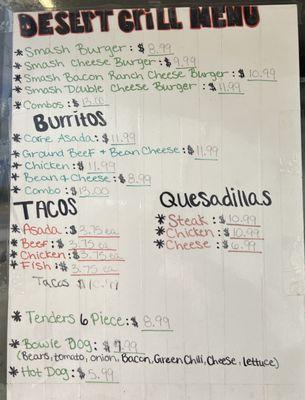 DESERT GRILL MENU
* Smash Burger: $8.99
* Smash Cheese Burger: $9.99
* Smash Bacon Ranch Cheese Burger: $10.99
* Smash Double Cheese Burger: $11.99
* Combos: $13.00
Burritos
* Carne Asada: $11.99
* Ground Beef + Bean Cheese: $11.99
* Chicken: $11.99
* Bean & Cheese: $8.99
* Combo: $13.00
TACOS
* Asada: $3.75 ea
* Beef: $3.75 ea
* Chicken: $3.75 ea
* Fish: $3.75 ea
Tacos
Quesadillas
* Steak: $10.99
* Chicken: $10.99
* Cheese: $6.99
* Tenders 6 Piece: $8.99
* Bowie Dog: $7.99
(Bears, tomato, onion, Bacon, Green Chili, Cheese, lettuce)
* Hot Dog: $5.99